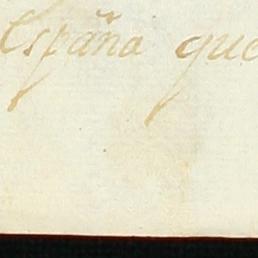 España que